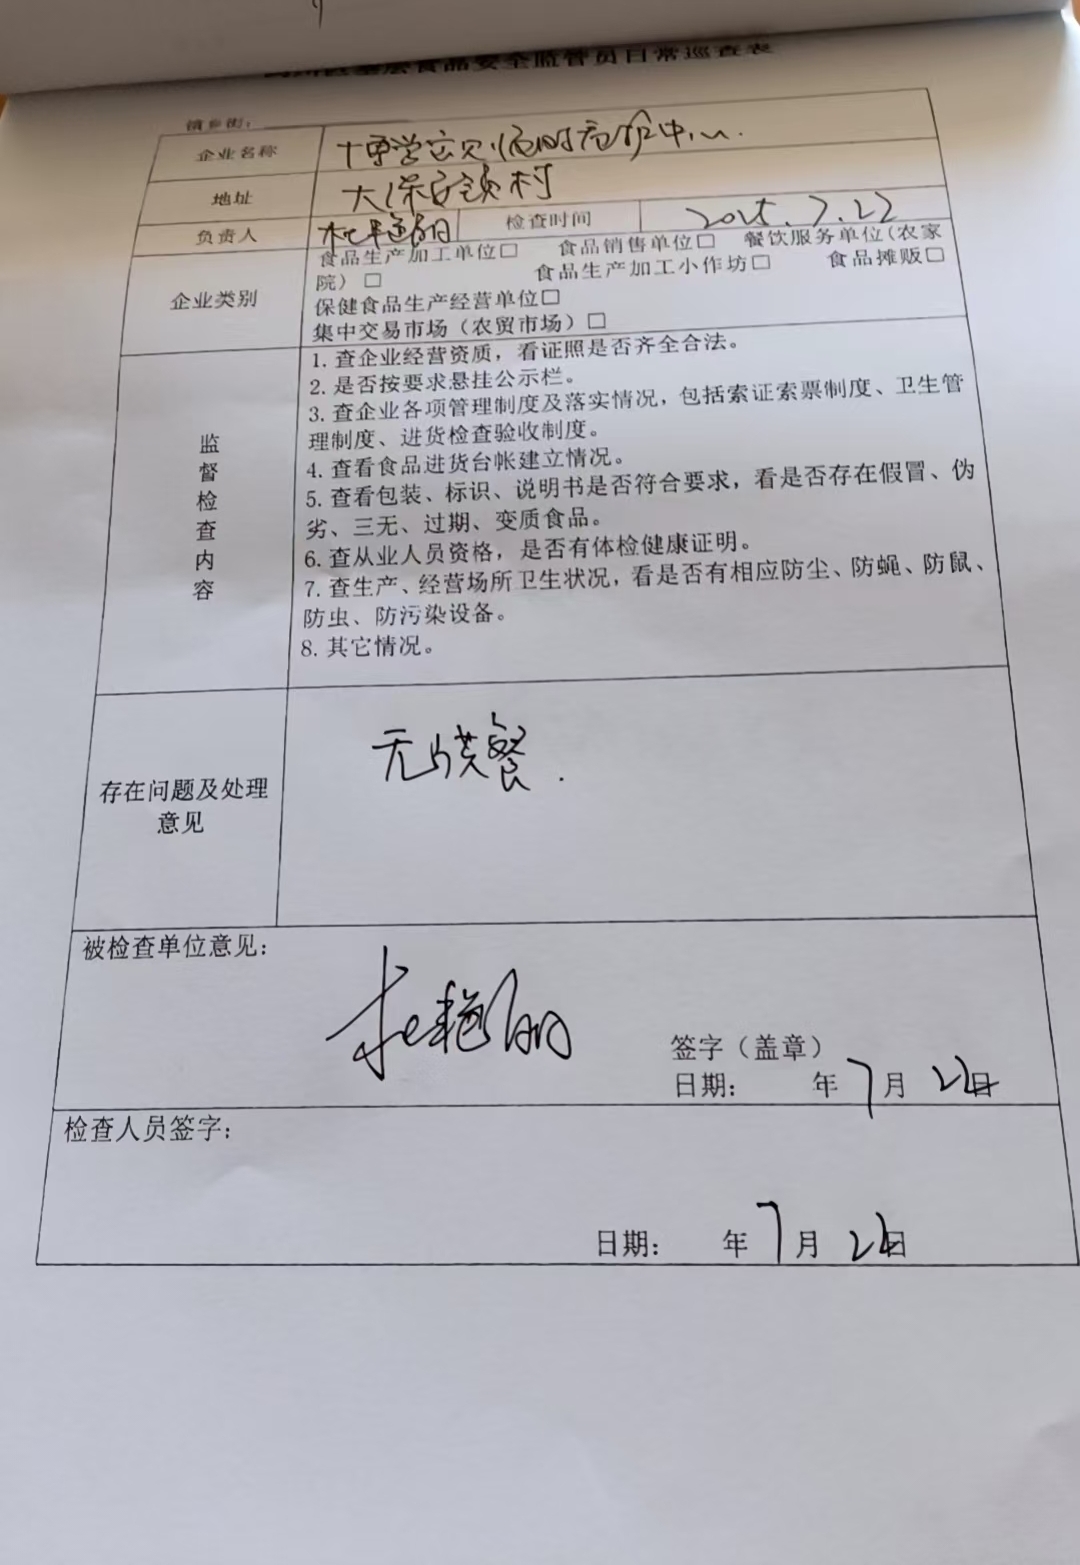 基层食品安全监管员日常巡查表
镇乡街：
企业名称 博学宝贝临时看护中心.
地址 大保安镇村
负责人 杜艳丽 检查时间 2025.7.22
企业类别
食品生产加工单位□ 食品销售单位□ 餐饮服务单位(农家
院）□ 食品生产加工小作坊□ 食品摊贩□
保健食品生产经营单位□
集中交易市场（农贸市场）□
监督检查内容
1. 查企业经营资质，看证照是否齐全合法。
2. 是否按要求悬挂公示栏。
3. 查企业各项管理制度及落实情况，包括索证索票制度、卫生管
理制度、进货检查验收制度。
4. 查看食品进货台帐建立情况。
5. 查看包装、标识、说明书是否符合要求，看是否存在假冒、伪
劣、三无、过期、变质食品。
6. 查从业人员资格，是否有体检健康证明。
7. 查生产、经营场所卫生状况，看是否有相应防尘、防蝇、防鼠、
防虫、防污染设备。
8. 其它情况。
存在问题及处理
意见
无供餐.
被检查单位意见：
杜艳丽
签字（盖章）
日期： 年7月22日
检查人员签字：
日期： 年7月22日